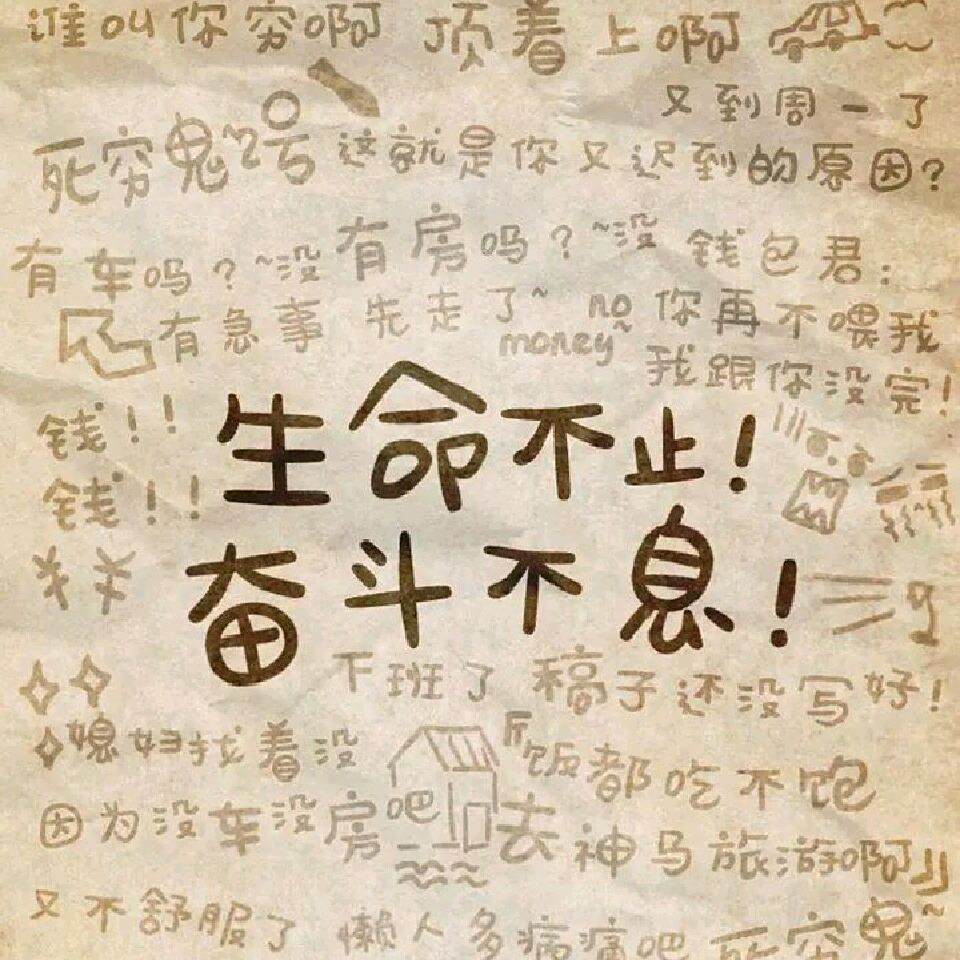 谁叫你穷啊 顶着上啊
又到周一了
死穷鬼~2号 这就是你又迟到的原因?
有车吗?~没 有房吗?~没 钱包君:
有急事 先走了~ no money~ 你再不喂我
我跟你没完!
钱!!
生命不止!
钱!!
奋斗不息!
下班了 稿子还没写好!
媳妇找着没 饭都吃不饱
因为没车没房吧 去神马旅游啊
又不舒服了 懒人多病痛吧 死穷鬼~